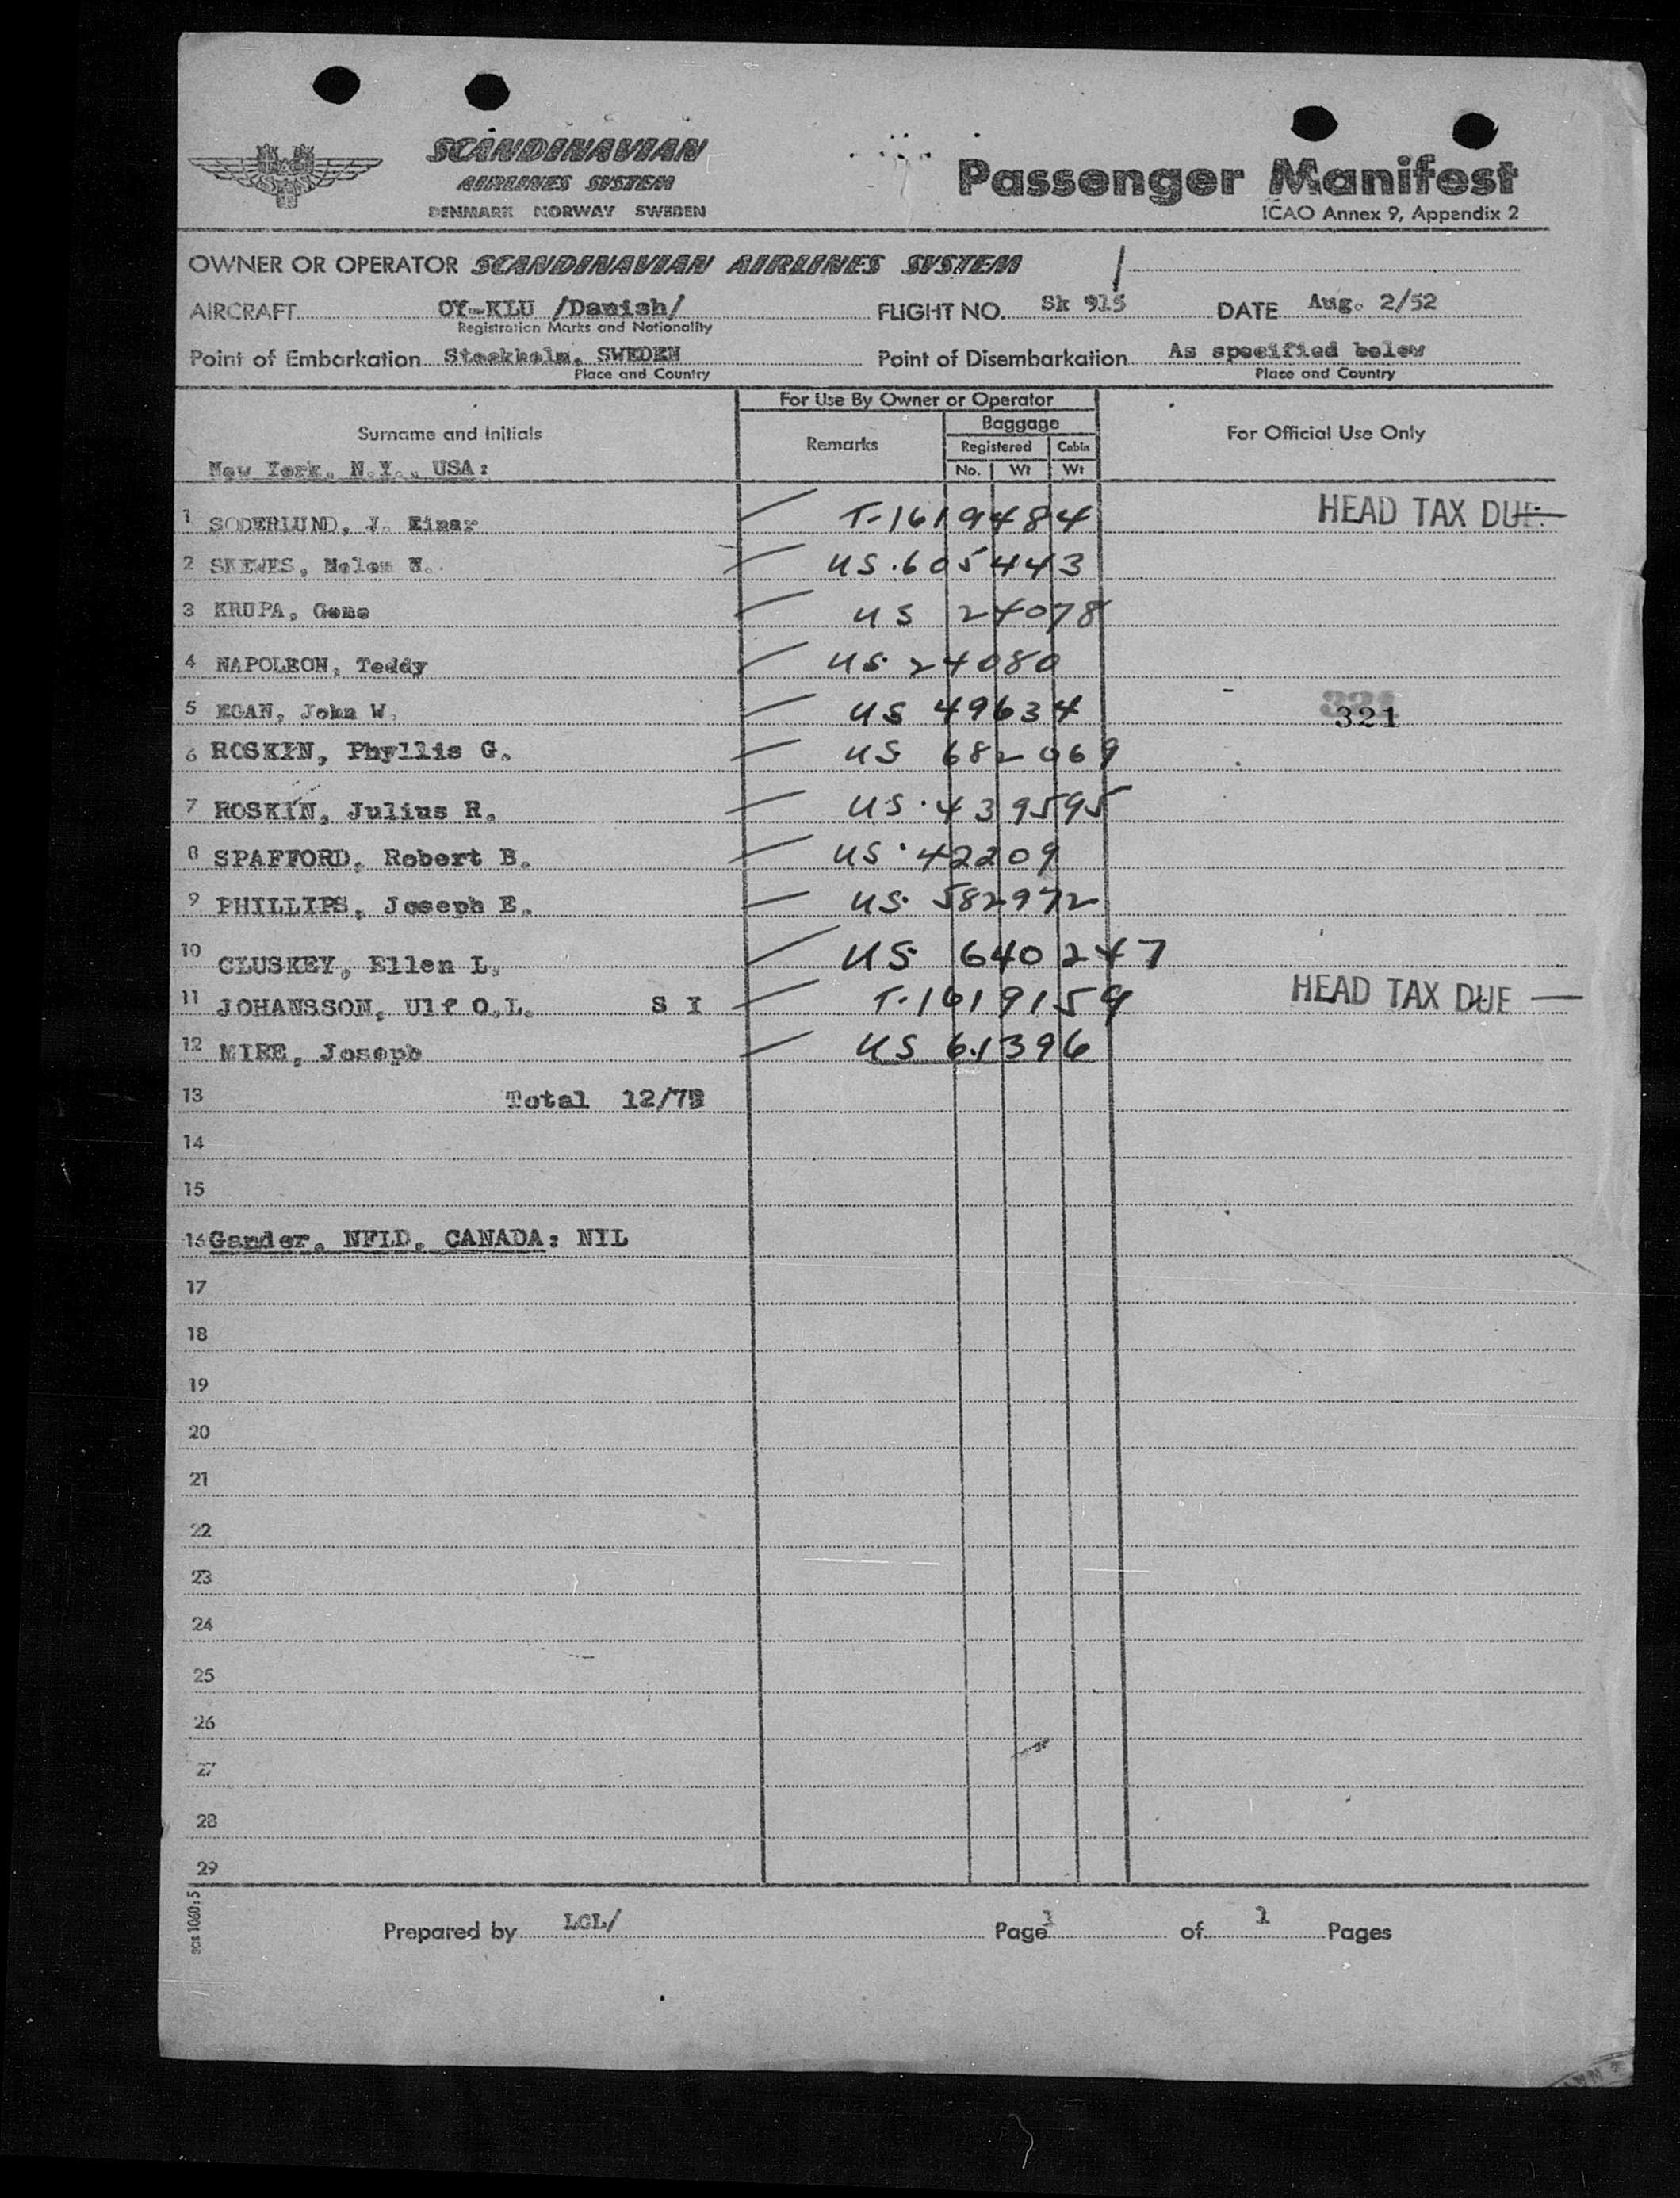 SCANDINAVIAN
AIRLINES SYSTEM
DENMARK NORWAY SWEDEN
Passenger Manifest
ICAO Annex 9, Appendix 2
OWNER OR OPERATOR SCANDINAVIAN AIRLINES SYSTEM
AIRCRAFT OY-KLU /Danish/ FLIGHT NO. Sk 915 DATE Aug. 2/52
Registration Marks and Nationality
Point of Embarkation Stockholm, SWEDEN Point of Disembarkation As specified below
Place and Country Place and Country
For Use By Owner or Operator
Surname and Initials Remarks Baggage For Official Use Only
Registered Cabin
New York, N.Y., USA: No. Wt Wt
1 SODERLUND, J. Einar T-1619484 HEAD TAX DUE
2 SKEWES, Helen N. US.605443
3 KRUPA, Gene US 24078
4 NAPOLEON, Teddy US. 24080
5 EGAN, John W. US 49634 321
6 ROSKIN, Phyllis G. US 682069
7 ROSKIN, Julius R. US.439595
8 SPAFFORD, Robert B. US.42209
9 PHILLIPS, Joseph E. US. 582972
10 CLUSKEY, Ellen L. US 640247
11 JOHANSSON, Ulf O.L. S I T-1619159 HEAD TAX DUE
12 MIRE, Joseph US 61396
13 Total 12/
14
15
16 Gander, NFLD, CANADA: NIL
17
18
19
20
21
22
23
24
25
26
27
28
29
SCS 1060:5
Prepared by LGL/ Page 1 of 1 Pages